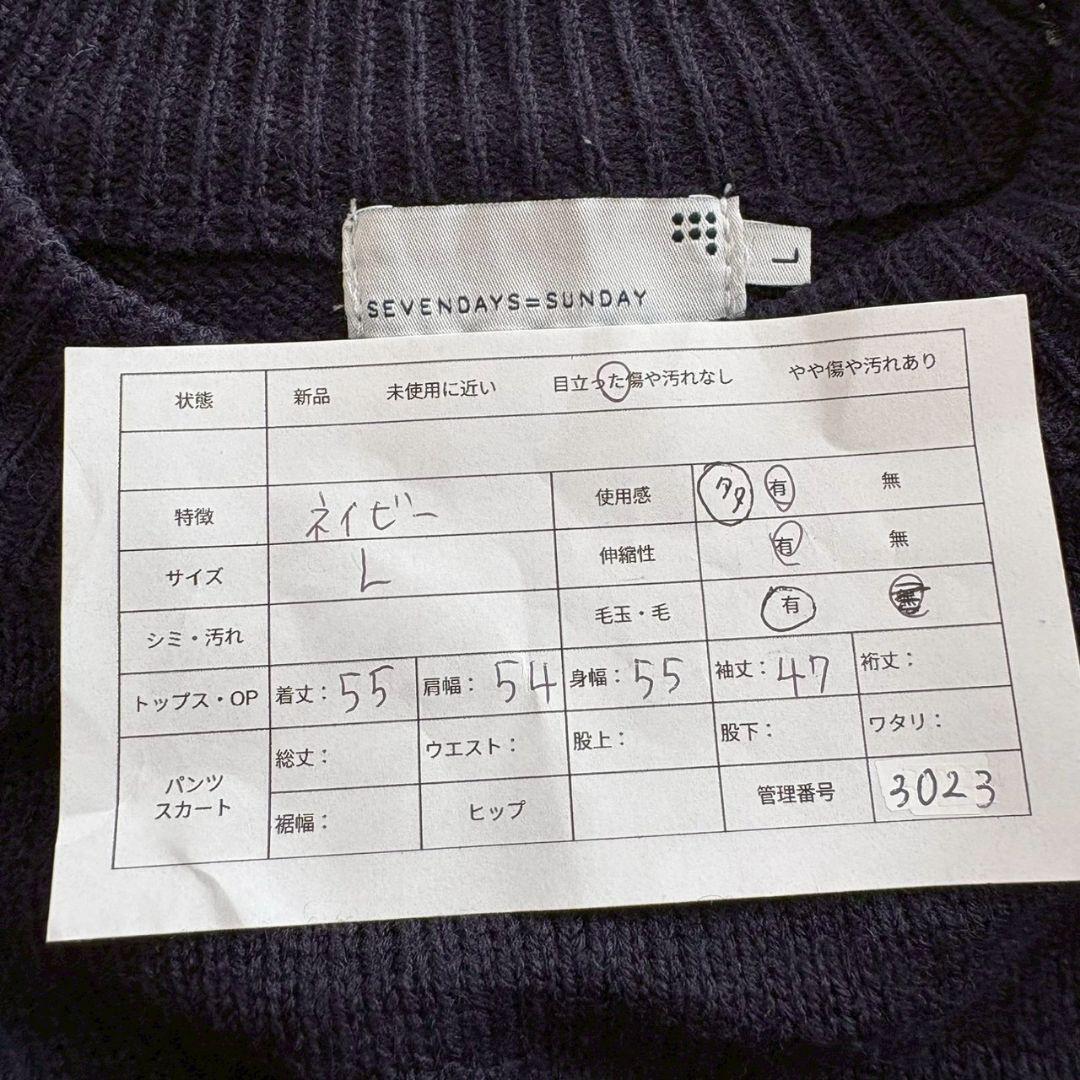 SEVENDAYS=SUNDAY
L
状態 新品 未使用に近い 目立った傷や汚れなし やや傷や汚れあり
特徴 ネイビー 使用感 有 無
サイズ L 伸縮性 有 無
シミ・汚れ 毛玉・毛 有 無
トップス・OP 着丈：55 肩幅：54 身幅：55 袖丈：47 裄丈：
パンツ
スカート
総丈： ウエスト： 股上： 股下： ワタリ：
裾幅： ヒップ 管理番号 3023